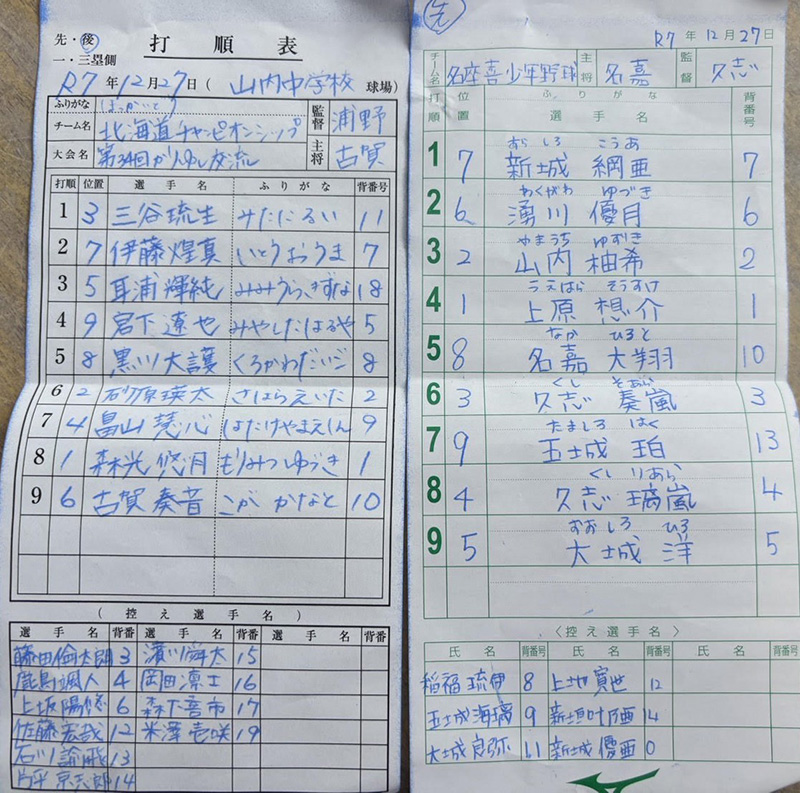 先・後 打順表
一・三塁側
R7年12月27日(山内中学校 球場)
ふりがな ほっかいどう
チーム名 北海道チャンピオンシップ
監督 浦野
大会名 第34回がんじゅう交流
主将 古賀
打順 位置 選手名 ふりがな 背番号
1 3 三谷琉生 みたにるい 11
2 7 伊藤煌真 いとうおうま 7
3 5 耳浦輝純 みみうらきずな 18
4 9 宮下遼也 みやしたはるや 5
5 8 黒川大護 くろかわだいご 8
6 2 砂原瑛太 さはらえいた 2
7 4 畠山慧心 はたけやまえしん 9
8 1 森光悠月 もりみつゆづき 1
9 6 古賀奏音 こが かなと 10
(控え選手名)
選手名 背番 選手名 背番 選手名 背番
藤田倫太朗 3 濱川舜太 15
鹿島颯人 4 岡田凛士 16
上坂陽悠 6 森下喜市 17
佐藤宏哉 12 米澤壱咲 19
石川諭飛 13
片平京志郎 14
先
R7年12月27日
チーム名 名座喜少年野球 主将 名嘉 監督 久志
打順 位置 ふりがな 選手名 背番号
あらしろ こうあ
1 7 新城 綱亜 7
わくがわ ゆづき
2 6 湧川 優月 6
やまうち ゆずき
3 2 山内 柚希 2
うえはら そうすけ
4 1 上原 想介 1
なか ひろと
5 8 名嘉 大翔 10
くし そあら
6 3 久志 奏嵐 3
たましろ はく
7 9 玉城 珀 13
くし りあら
8 4 久志 璃嵐 4
おおしろ ひろ
9 5 大城 洋 5
〈控え選手名〉
氏名 背番号 氏名 背番号 氏名 背番号
稲福琉伊 8 上地寛世 12
玉城海璃 9 新垣叶西 14
大城良弥 11 新城優亜 0